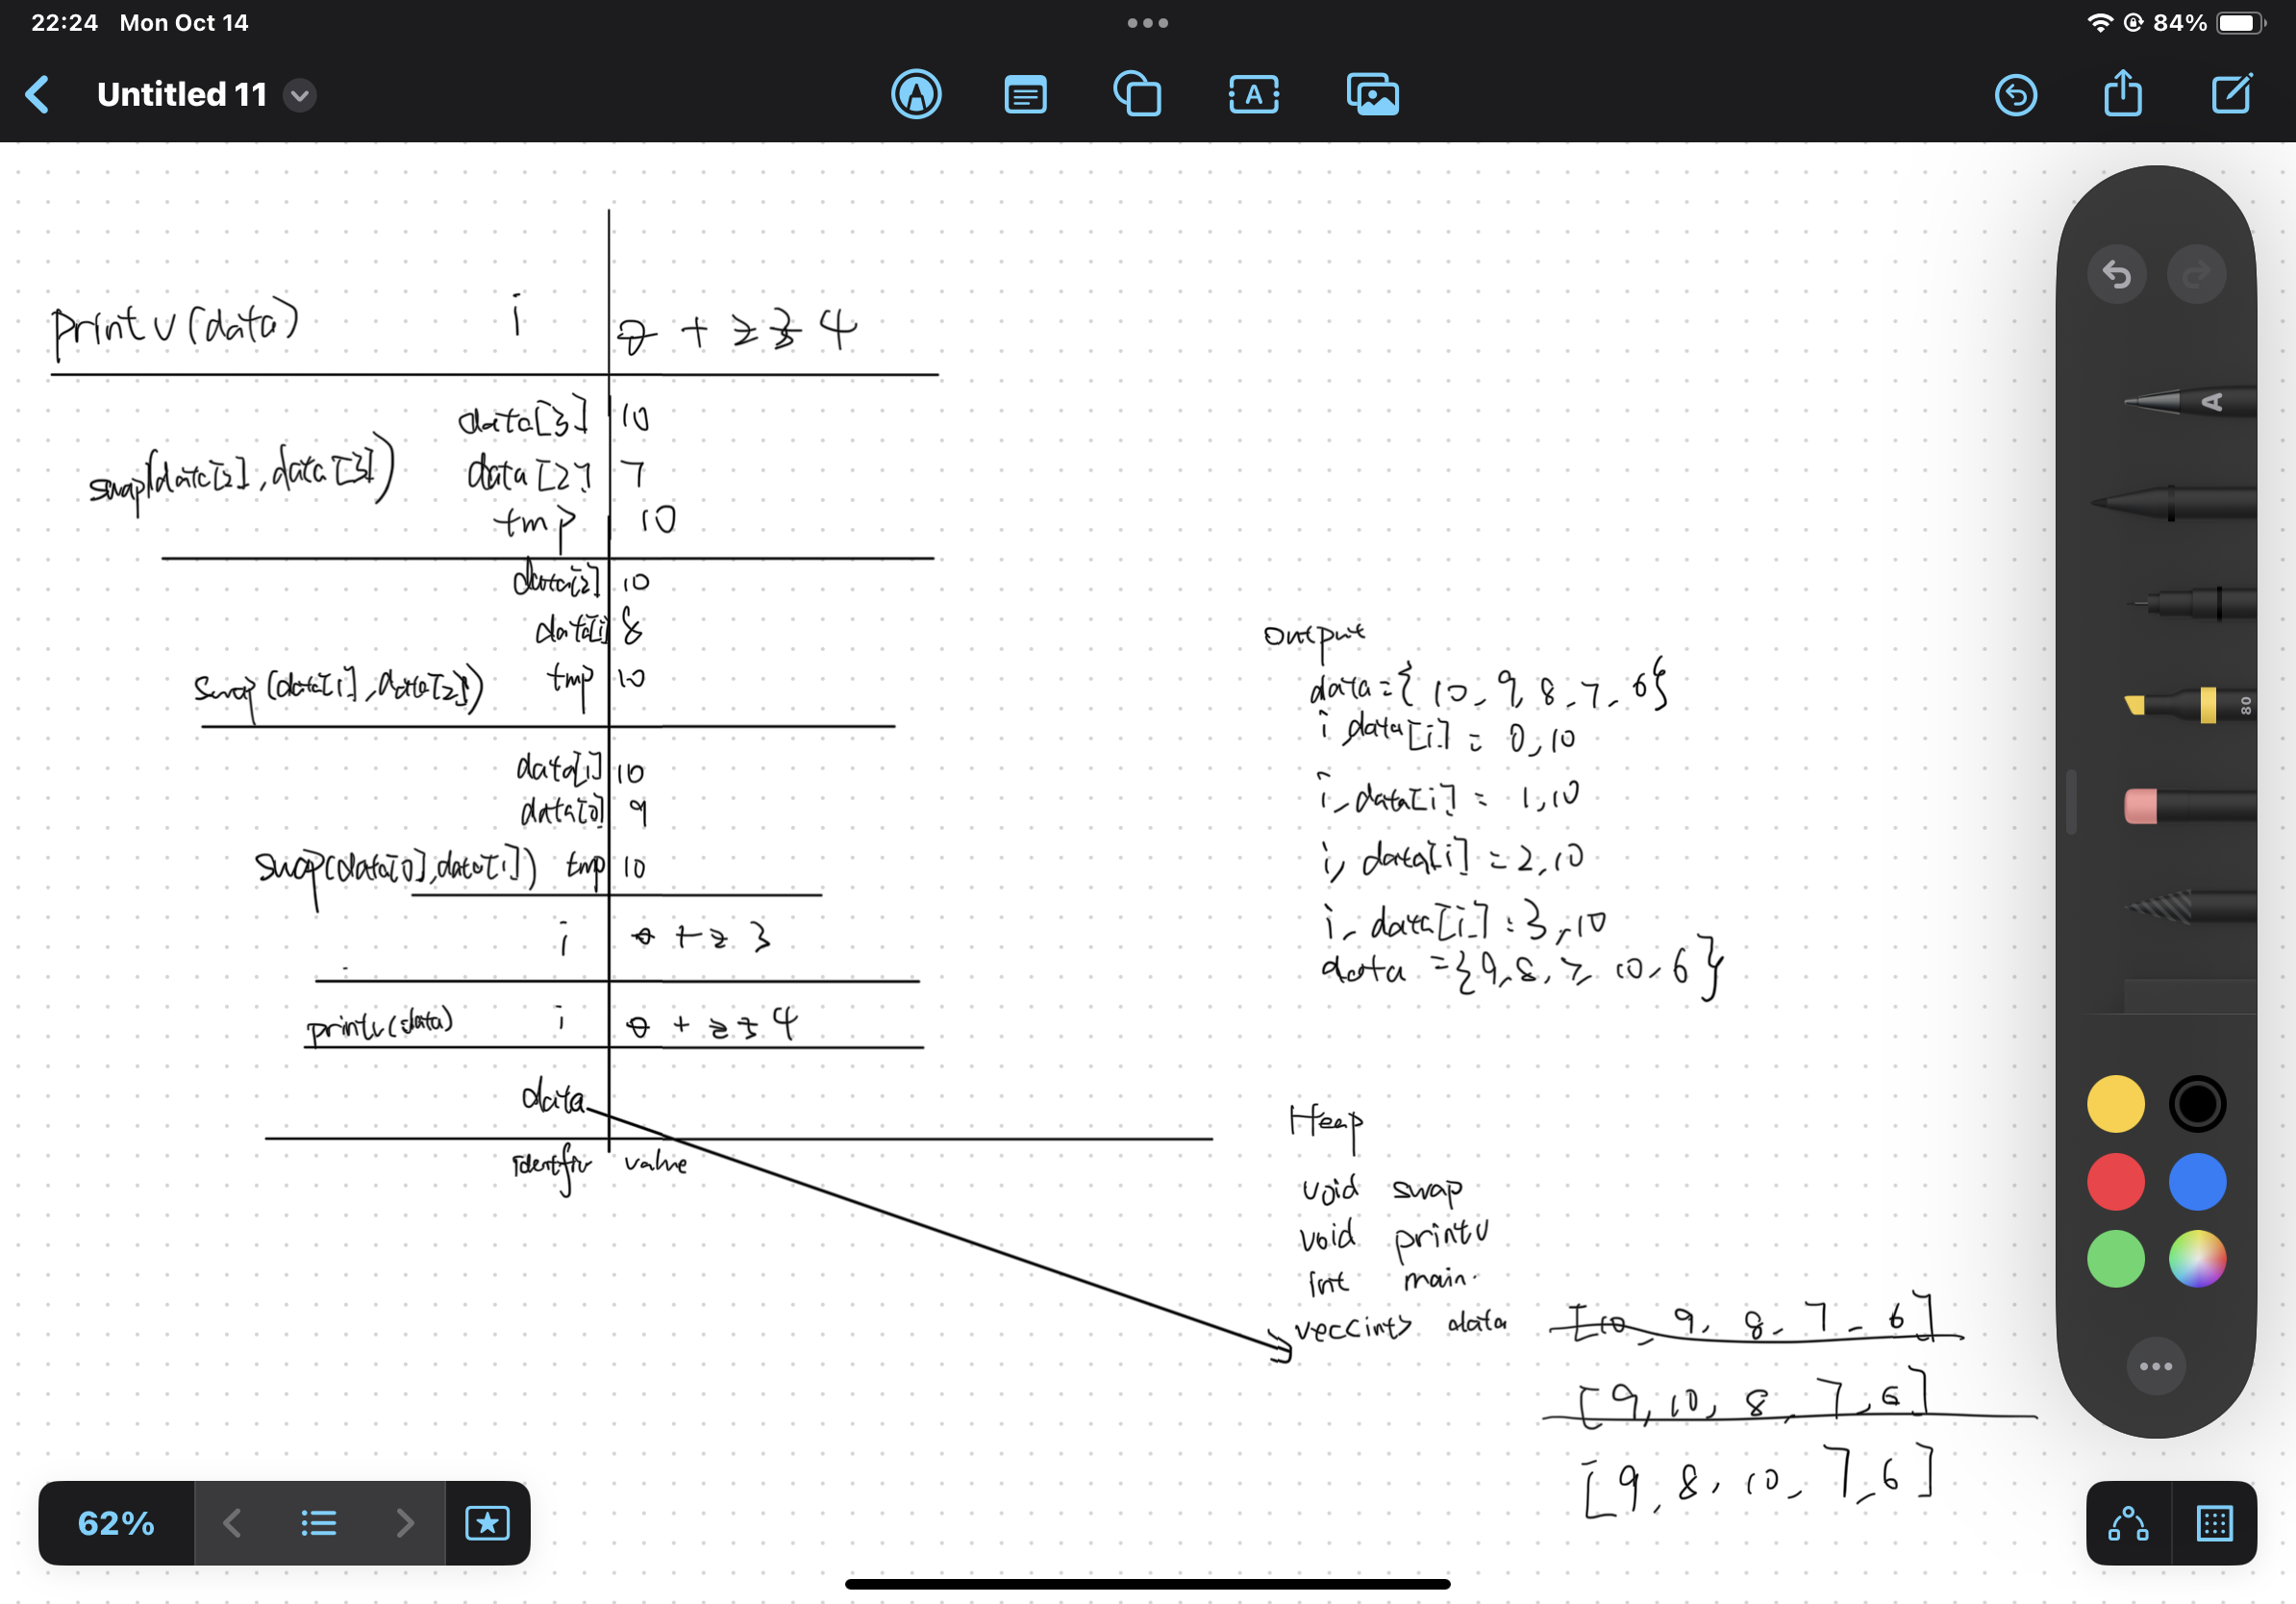 22:24 Mon Oct 14
84%
Untitled 11
A
printv(data) i 0 1 2 3 4
data[3] 10
swap(data[2], data[3]) data[2] 7
tmp 10
data[2] 10
data[1] 8
swap(data[1], data[2]) tmp 10
data[1] 10
data[0] 9
swap(data[0], data[1]) tmp 10
i 0 1 2 3
printv(data) i 0 1 2 3 4
data
value
output
data={10, 9, 8, 7, 6}
i, data[i] = 0, 10
i, data[i] = 1, 10
i, data[i] = 2, 10
i, data[i] = 3, 10
data ={9, 8, 7, 10, 6}
Heap
void swap
void printv
int main
vec<int> data [10, 9, 8, 7, 6]
[9, 10, 8, 7, 6]
[9, 8, 10, 7, 6]
A
80
62%